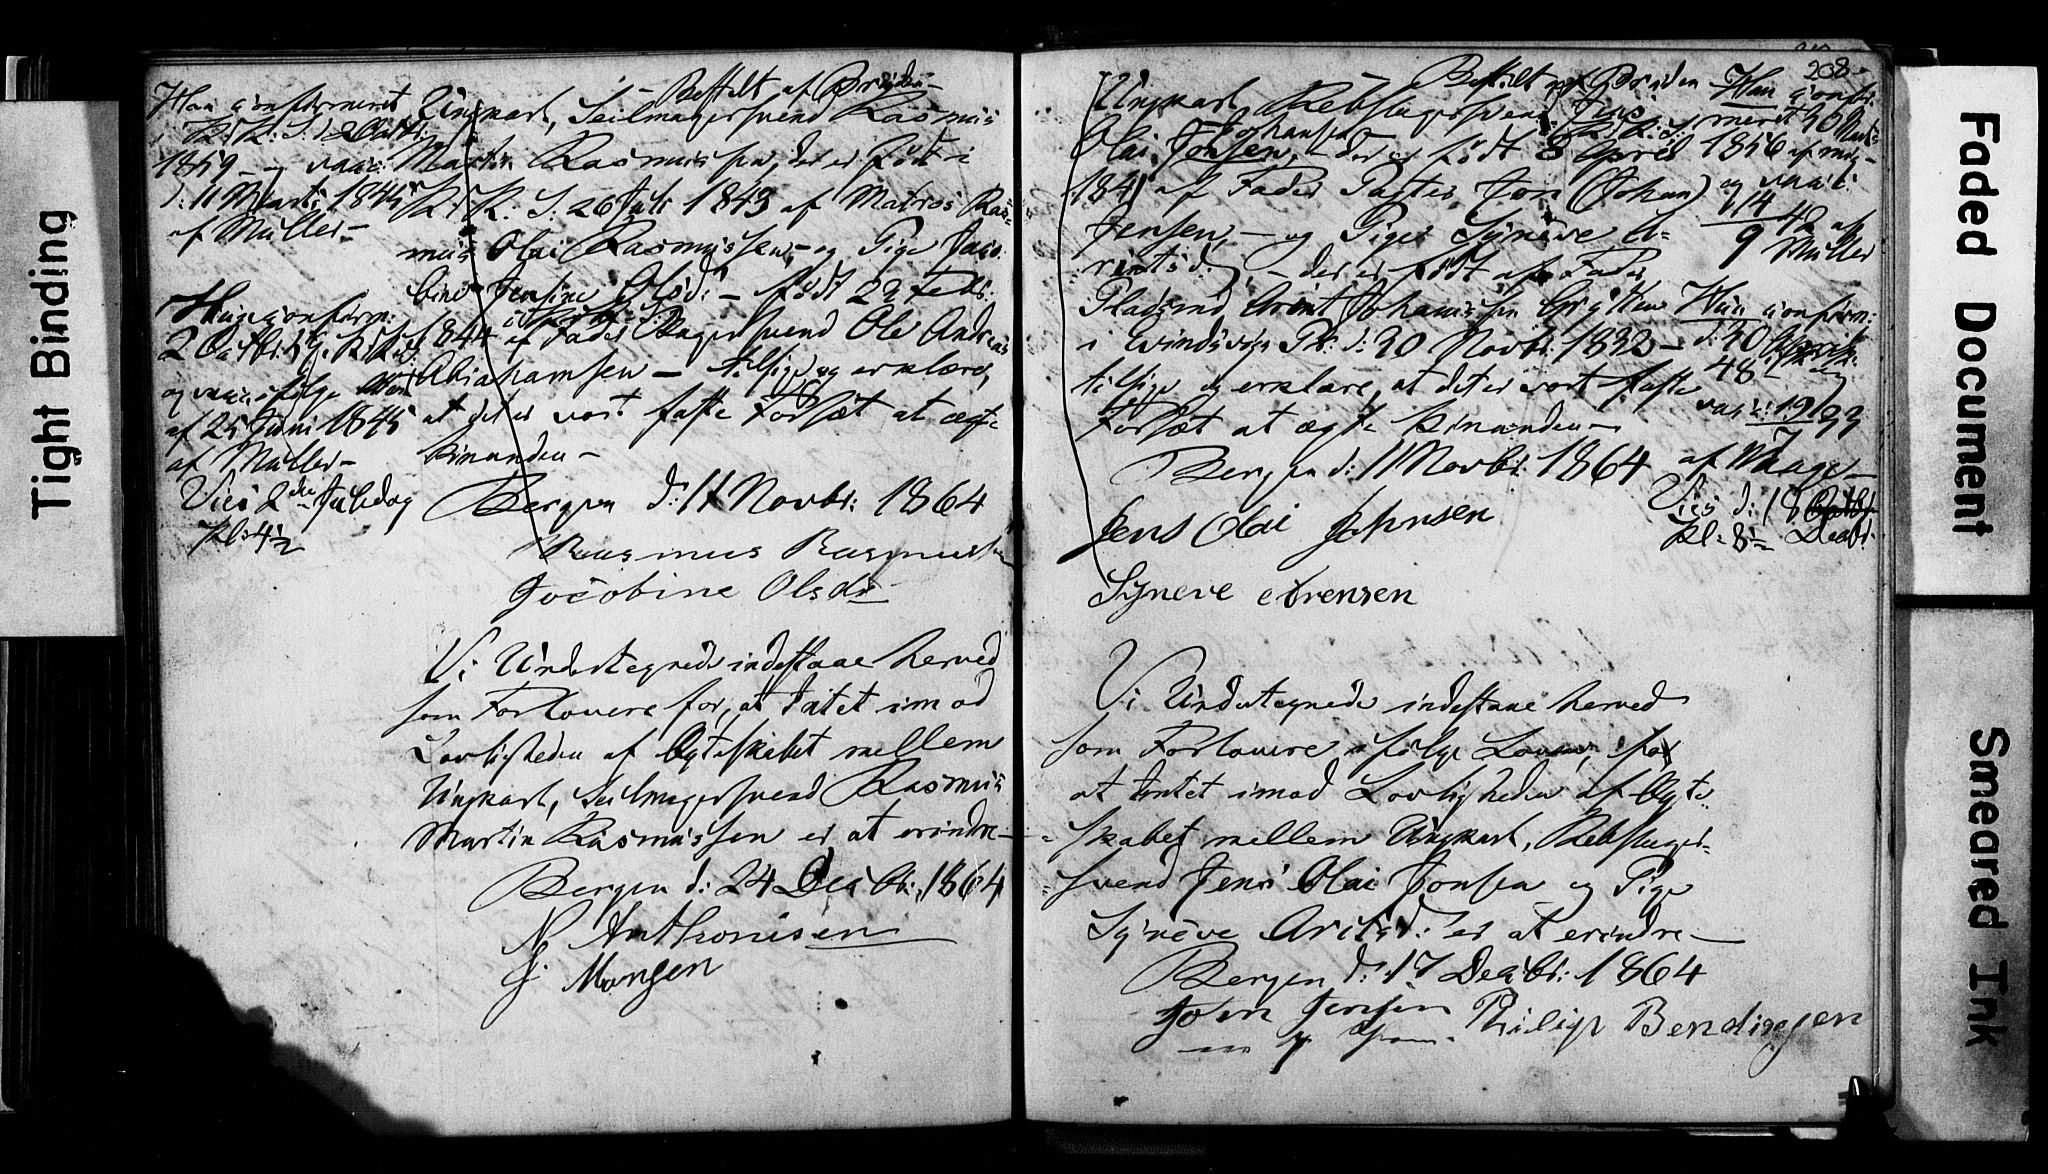 Tight Binding
Bestilt af Bruden
Han confirmeret
i K: K: S: 2 Octb:
1859 – og vacc:
d: 11 Marti 1845
af Müller –
Hun confirm:
2 Octbr 59 i K: K:
og vacc: ifølge
af 25 Juni 1845
af Müller –
Vies 2den Juledag
Kl: 4½
Ungkarl, Seilmagersvend Rasmus
Martin Rasmussen, der er født i
K: K: S: 26 Juli 1843 af Matros Ras=
mus Olai Rasmussen, – og Pige Jaco
bine Jensine Olsd: – født 22 Febr:
1844 af Fader Bagersvend Ole Andreas
Abrahamsen – tilsige og erklære,
at det er vort faste Forsæt at ægte
hinanden –
Bergen d: 11 Novbr: 1864
Rasmus Rasmussen
Jocobine Olsdr
Vi Undertegnede indestaae herved
som Forlovere for, at Intet imod
Lovligheden af Ægteskabet mellem
Ungkarl, Seilmagersvend Rasmus
Martin Rasmussen er at erindre –
Bergen d: 24 Decbr: 1864
N Anthonisen
J. Monsen
208
Bestilt af Bruden
Ungkarl, Rebslagersvend Jens
Olai Johansen
Jonsen, – der er født 8 April
1841 af Fader Jon (Johan)
Jensen, – og Pige Synneve A=
rentsd: – der er født af Fader
Pladsmd Arent Johannessen
i Evindvigs Pr: d: 30 Novbr: 1832 –
tilsige og erklære, at det er vort faste
Forsæt at ægte hinanden –
Bergen d: 11 Novbr: 1864
Jens Olai Johnsen
Syneve Arensen
Han confir:
meret 30 Marts
1856 af
og vacc:
1/4 42 af
9 Müller
Hun confirm:
d: 30
48 –
vacc: 19/7 33
af Waage –
Vies d: 18 Octb
Kl: 8 – Decbr:
Vi Undertegnede indestaae herved
som Forlovere ifølge Loven, for
at Intet imod Lovligheden af Ægte
skabet mellem Ungkarl, Rebslager=
=svend Jens Olai Jonsen og Pige
Synneve Aritsd: er at erindre –
Bergen d: 17 Decbr: 1864
John Jensen Philip Bendixsen
Faded Document
Smeared Ink